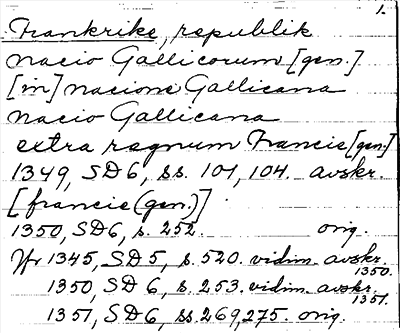 1.
Frankrike, republik
nacio Gallicorum [gen.]
[in] nacione Gallicana
nacio Gallicana
extra regnum Francie [gen.]
1349, SD6, ss. 101, 104. avskr.
[francie (gen.)]
1350, SD6, s. 252. orig.
Jfr 1345, SD5, s. 520. vidim. avskr. 1350.
1350, SD 6, s. 253. vidim. avskr. 1351.
1351, SD6, ss 269, 275. orig.